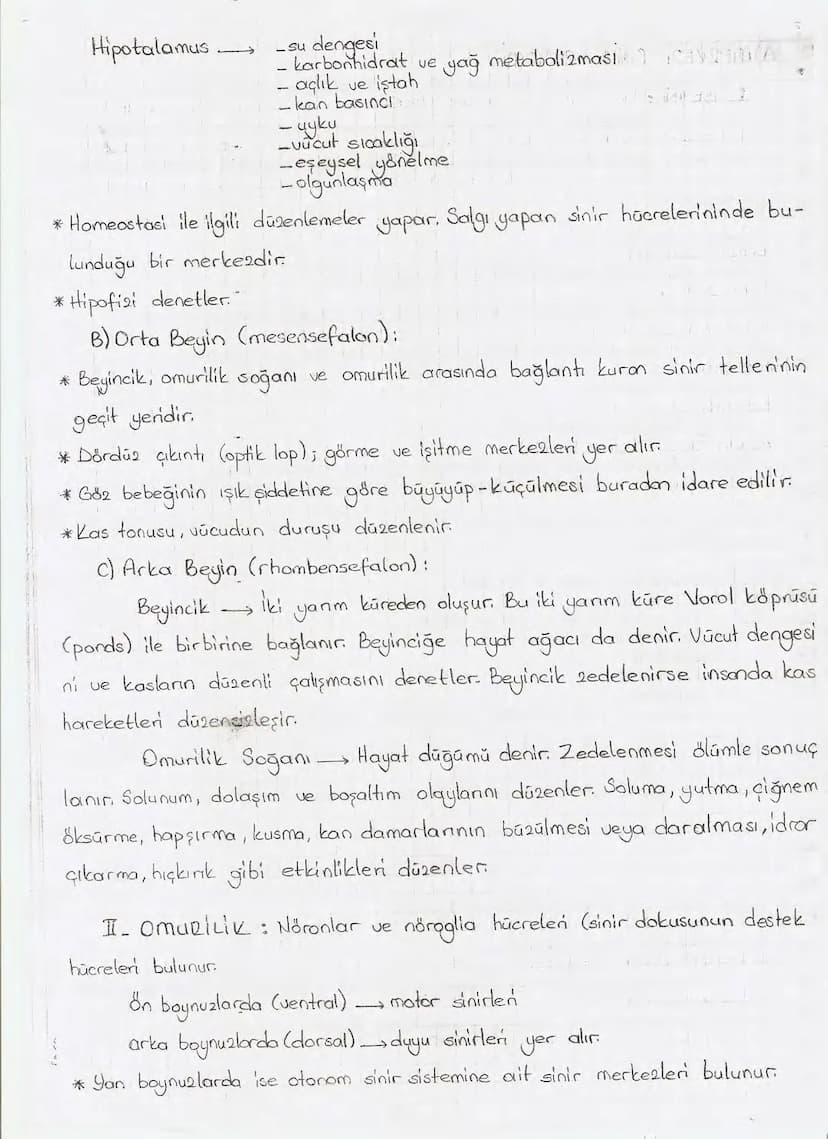 Hipotalamus → - su dengesi
- karbonhidrat ve yağ metabolizması
- açlık ve iştah
- kan basıncı
- uyku
- vücut sıcaklığı
- eşeysel yönelme
- olgunlaşma
* Homeostasi ile ilgili düzenlemeler yapar. Salgı yapan sinir hücrelerininde bu-
lunduğu bir merkezdir.
* Hipofizi denetler.
B) Orta Beyin (mesensefalon):
* Beyincik, omurilik soğanı ve omurilik arasında bağlantı kuran sinir tellerinin
geçit yeridir.
* Dördüz çıkıntı (optik lop); görme ve işitme merkezleri yer alır.
* Göz bebeğinin ışık şiddetine göre büyüyüp-küçülmesi buradan idare edilir.
* Kas tonusu, vücudun duruşu düzenlenir.
C) Arka Beyin (rhombensefalon):
Beyincik → İki yarım küreden oluşur. Bu iki yarım küre Varol köprüsü
(ponds) ile birbirine bağlanır. Beyinciğe hayat ağacı da denir. Vücut dengesi
ni ve kasların düzenli çalışmasını denetler. Beyincik zedelenirse insanda kas
hareketleri düzensizleşir.
Omurilik Soğanı → Hayat düğümü denir. Zedelenmesi ölümle sonuç
lanır. Solunum, dolaşım ve boşaltım olaylarını düzenler. Soluma, yutma, çiğnem
öksürme, hapşırma, kusma, kan damarlarının büzülmesi veya daralması, idrar
çıkarma, hıçkırık gibi etkinlikleri düzenler.
II- OMURİLİK : Nöronlar ve nöroglia hücreleri (sinir dokusunun destek
hücreleri bulunur.
Ön boynuzlarda (ventral) → motor sinirleri
arka boynuzlarda (dorsal) → duyu sinirleri yer alır.
* Yan boynuzlarda ise otorom sinir sistemine ait sinir merkezleri bulunur.